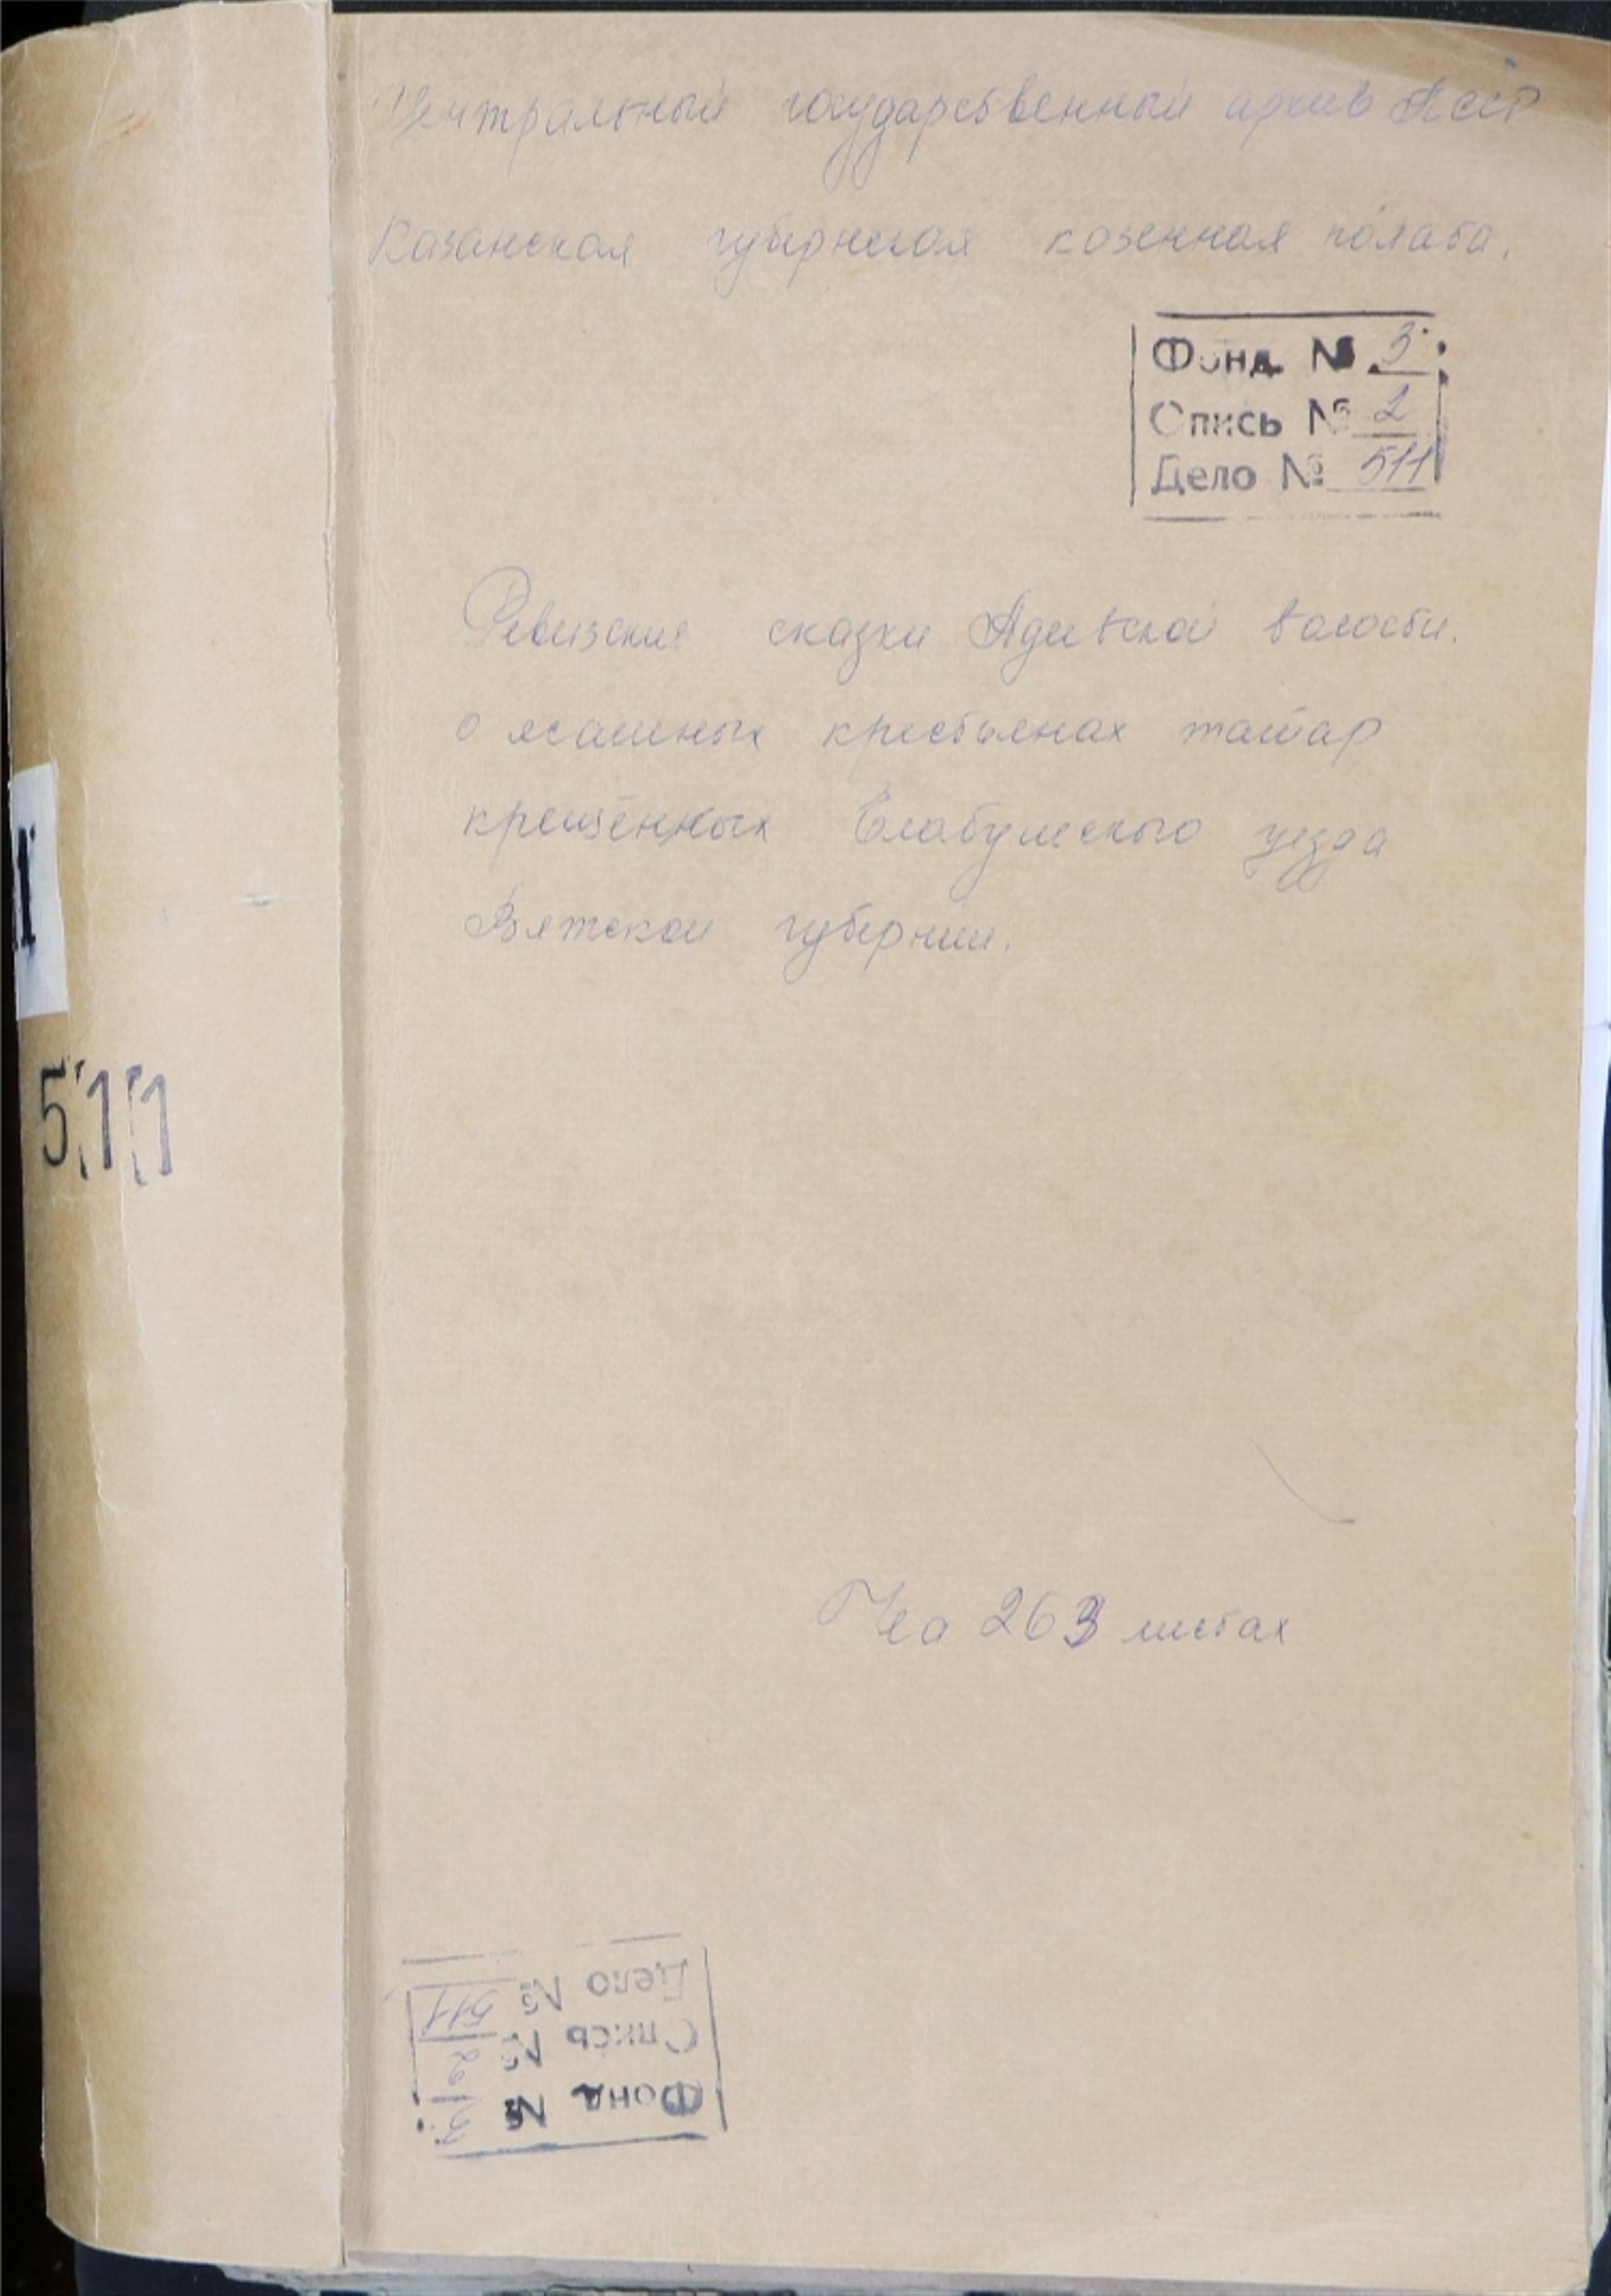 Центральный государственный архив ТАССР
Казанская губернская казенная палата.
Фонд № 3
Опись № 2
Дело № 511
Ревизские сказки Адаевской волости.
о ясашных крестьянах татар
крещённых Елабужского уезда
Вятской губернии.
511
На 263 листах
Фонд № 3
Опись № 2
Дело № 511